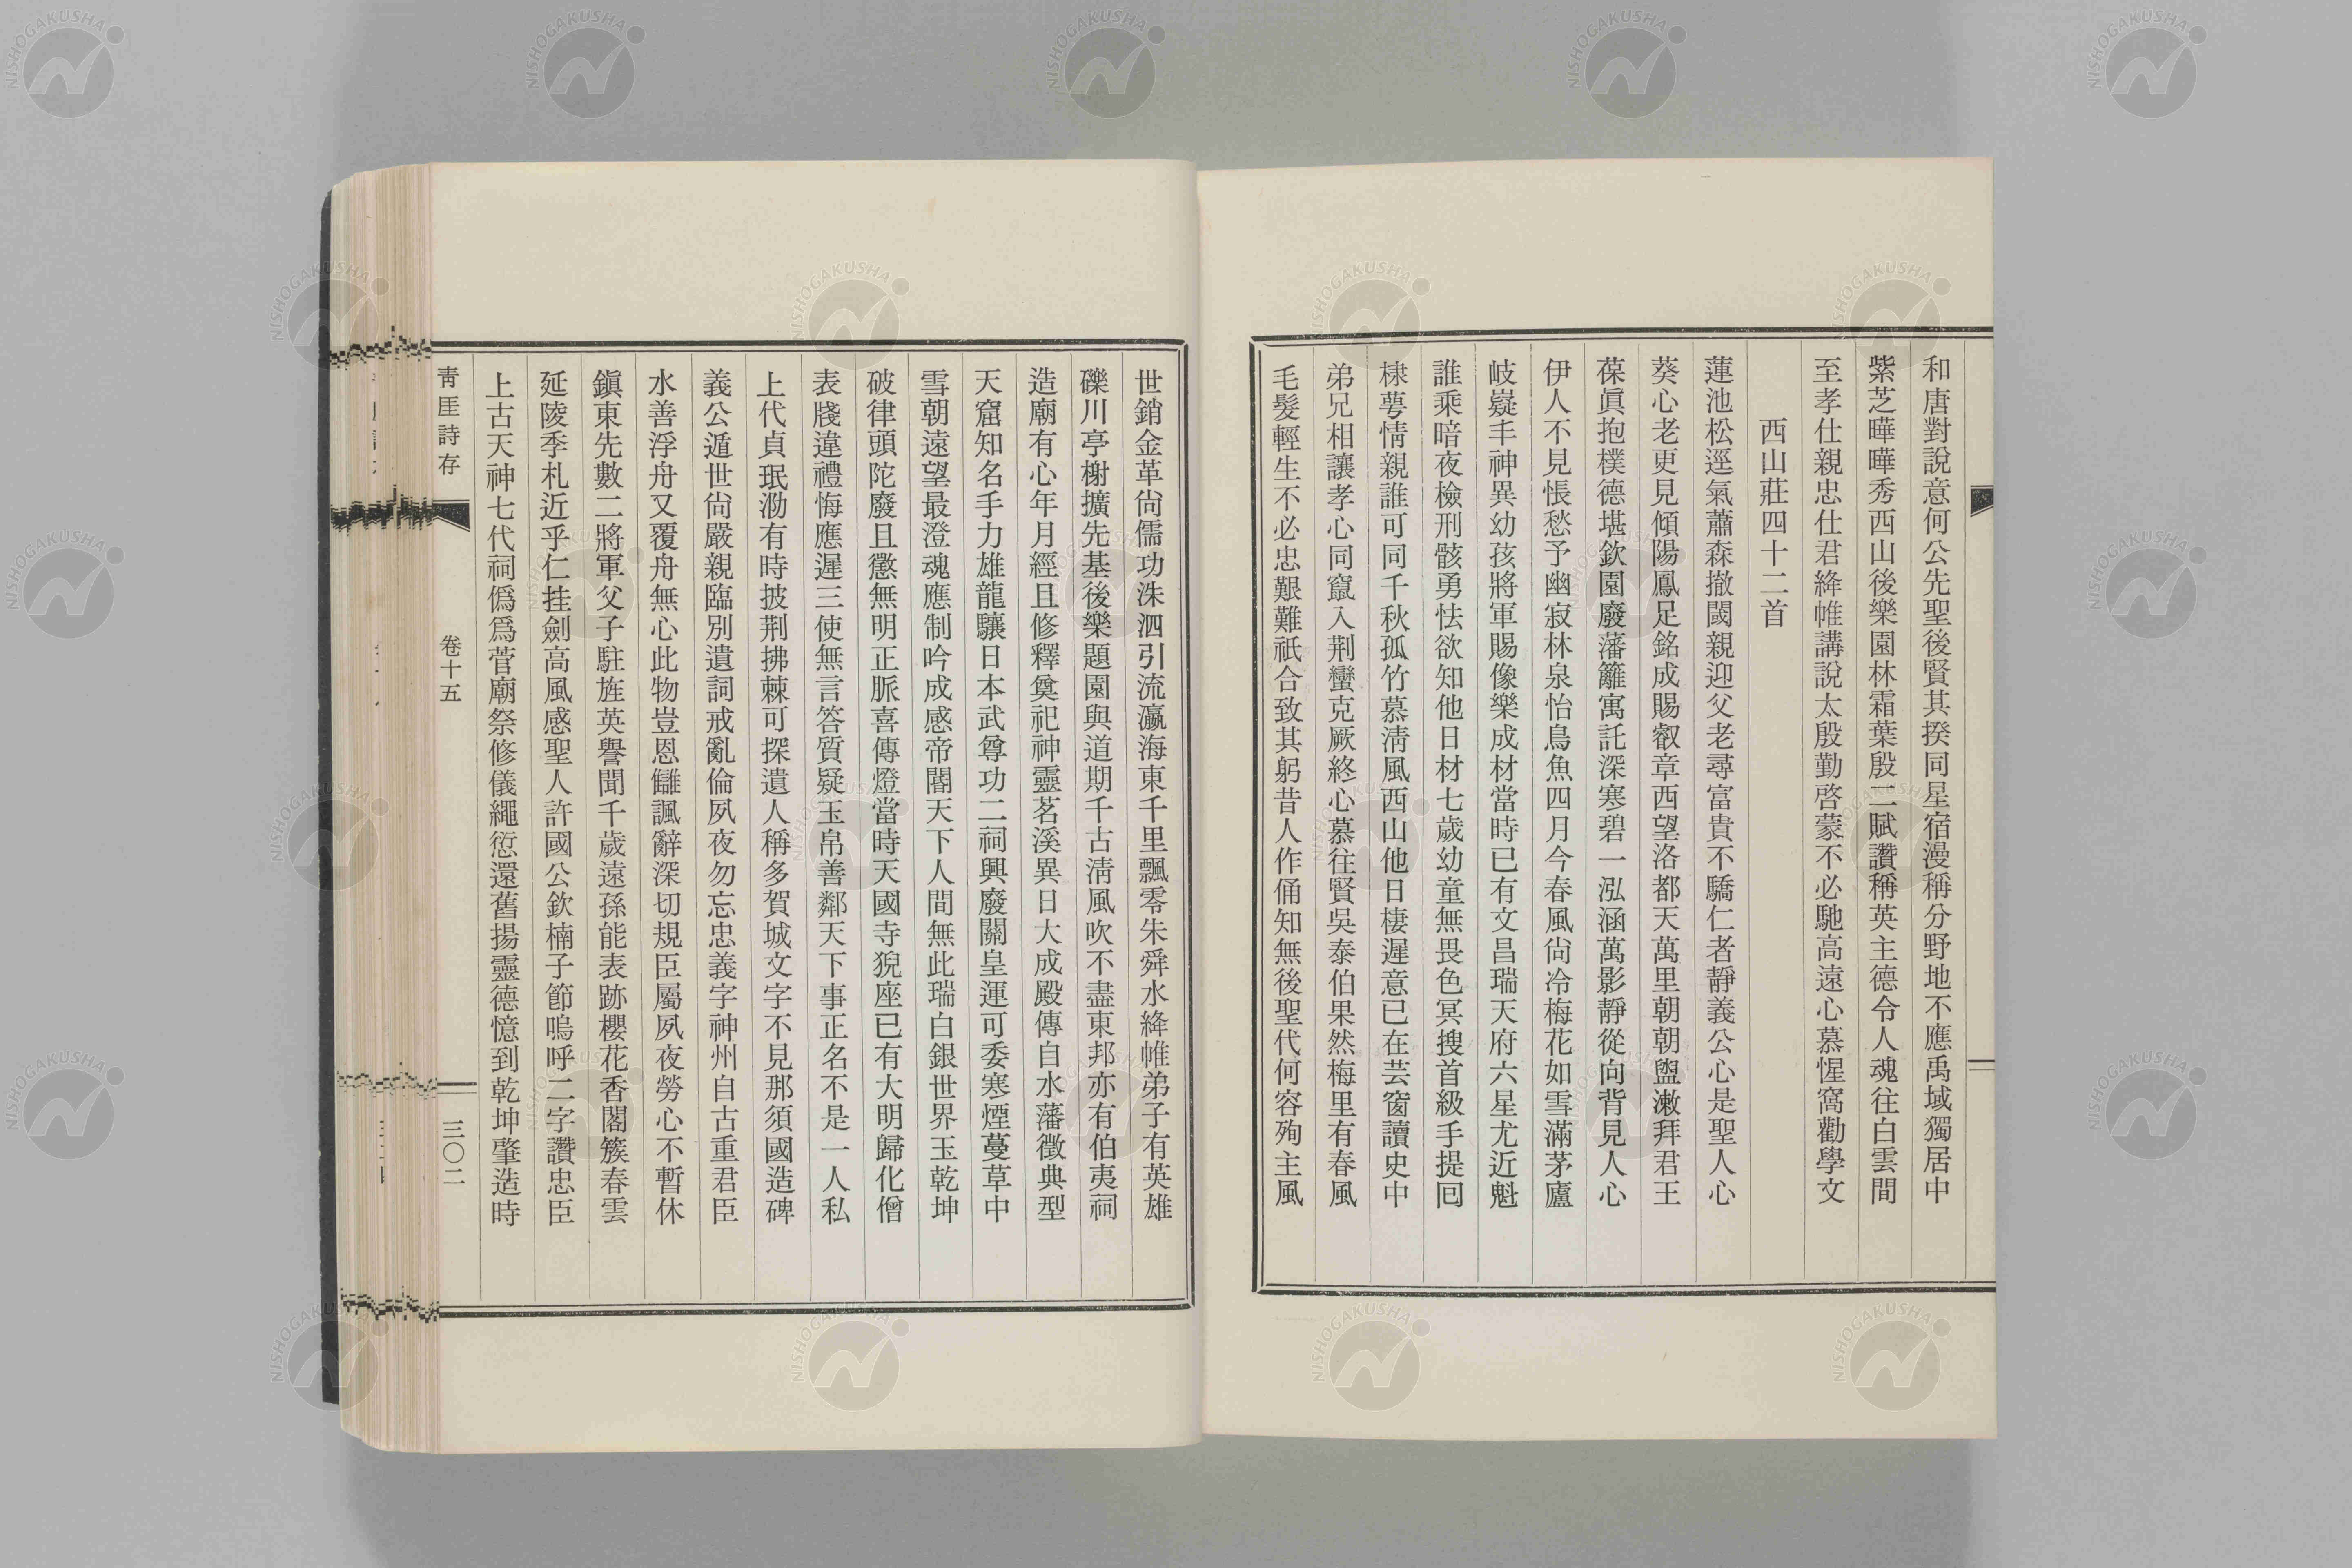 和唐對說意何公先聖後賢其揆同星宿漫稱分野地不應禹域獨居中
紫芝曄曄秀西山後樂園林霜葉殷二賦讚稱英主德令人魂往白雲間
至孝仕親忠仕君絳帷講說太殷勤啓蒙不必馳高遠心慕惺窩勸學文
西山莊四十二首
蓮池松逕氣蕭森撤閾親迎父老尋富貴不驕仁者靜義公心是聖人心
葵心老更見傾陽鳳足銘成賜叡章西望洛都天萬里朝朝盥漱拜君王
葆眞抱樸德堪欽園廢藩籬寓託深寒碧一泓涵萬影靜從向背見人心
伊人不見悵愁予幽寂林泉怡鳥魚四月今春風尙冷梅花如雪滿茅廬
岐嶷丰神異幼孩將軍賜像樂成材當時已有文昌瑞天府六星尤近魁
誰乘暗夜檢刑骸勇怯欲知他日材七歲幼童無畏色冥搜首級手提囘
棣萼情親誰可同千秋孤竹慕淸風西山他日棲遲意已在芸窗讀史中
弟兄相讓孝心同竄入荆蠻克厥終心慕往賢吳泰伯果然梅里有春風
毛髮輕生不必忠艱難祇合致其躬昔人作俑知無後聖代何容殉主風
世銷金革尙儒功洙泗引流瀛海東千里飄零朱舜水絳帷弟子有英雄
礫川亭榭擴先基後樂題園與道期千古淸風吹不盡東邦亦有伯夷祠
造廟有心年月經且修釋奠祀神靈茗溪異日大成殿傳自水藩徵典型
天窟知名手力雄龍驤日本武尊功二祠興廢關皇運可委寒煙蔓草中
雪朝遠望最澄魂應制吟成感帝閽天下人間無此瑞白銀世界玉乾坤
破律頭陀廢且懲無明正脈喜傳燈當時天國寺猊座已有大明歸化僧
表牋違禮悔應遲三使無言答質疑玉帛善鄰天下事正名不是一人私
上代貞珉泐有時披荆拂棘可探遺人稱多賀城文字不見那須國造碑
義公遁世尙嚴親臨別遺詞戒亂倫夙夜勿忘忠義字神州自古重君臣
水善浮舟又覆舟無心此物豈恩讎諷辭深切規臣屬夙夜勞心不暫休
鎭東先數二將軍父子駐旌英譽聞千歲遠孫能表跡櫻花香閣簇春雲
延陵季札近乎仁挂劍高風感聖人許國公欽楠子節嗚呼二字讚忠臣
上古天神七代祠僞爲菅廟祭修儀繩愆還舊揚靈德憶到乾坤肇造時
靑厓詩存
卷十五
三〇二
NISHOGAKUSHA